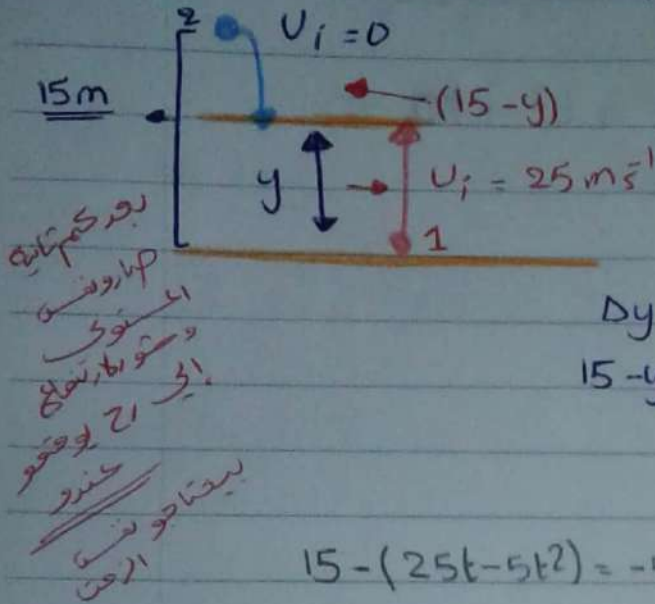 2 U i = 0
15m
(15 - y)
y
U i = 25 m s⁻¹
1
بعد كم ثانيه
صارو نفس
المستوى
و شو الارتفاع
الي رح يوقفو
عندو
بيحتاجو نفس
الزمن
Dy
15 - y
15 - (25t - 5t²) = -